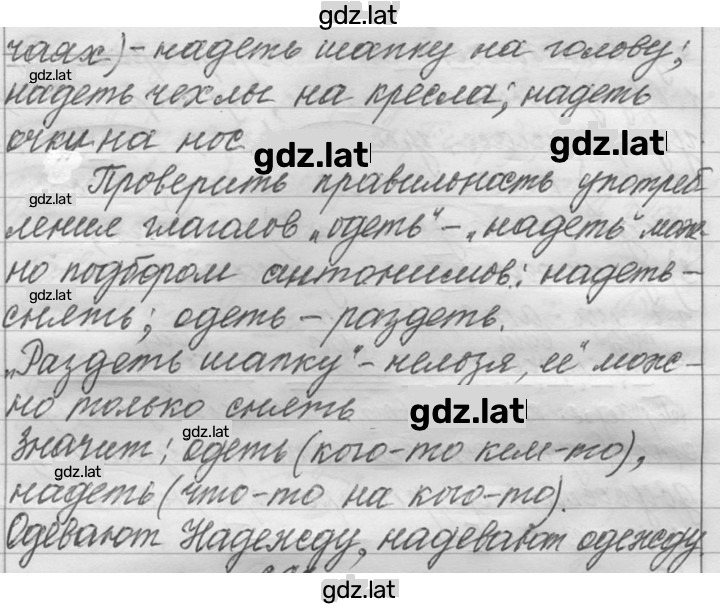 gdz.lat
чаях) – надеть шапку на голову;
gdz.lat
надеть чехлы на кресла; надеть
очки на нос
gdz.lat gdz.lat
Проверить правильность употреб
gdz.lat
ление глаголов „одеть“ – „надеть“ мож-
но подбором антонимов: надеть –
gdz.lat
снять; одеть – раздеть.
„Раздеть шапку“ – нельзя, её" мож-
но только снять
gdz.lat
gdz.lat
Значит; одеть (кого-то кем-то),
gdz.lat
надеть (что-то на кого-то).
Одевают Надежду, надевают одежду
gdz.lat